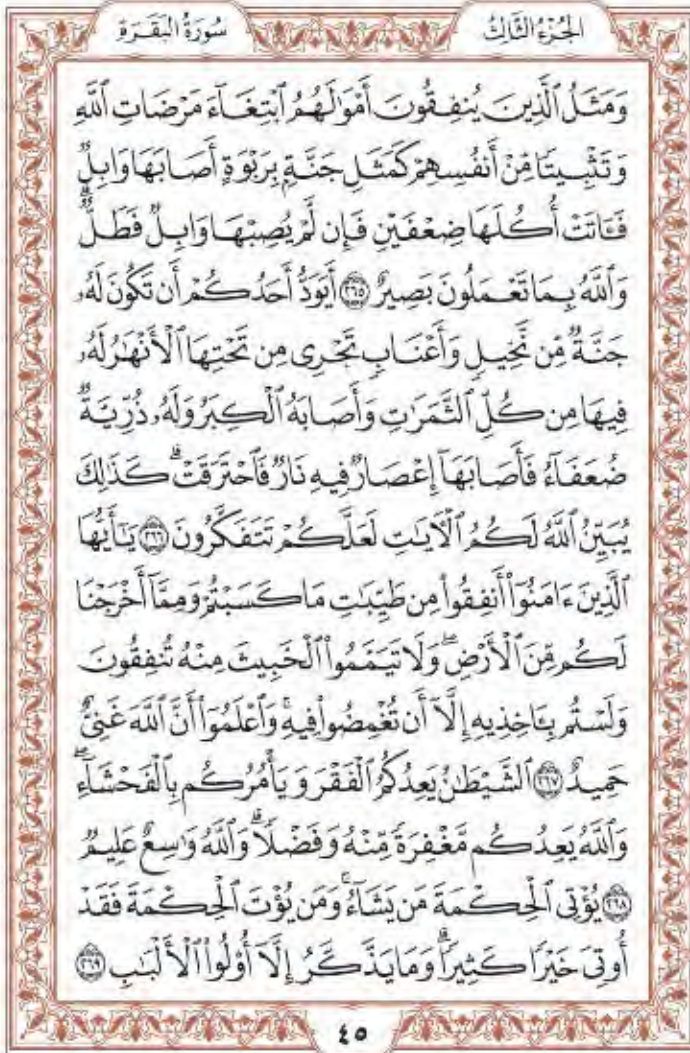 سُورَةُ البَقَرَةِ
الجُزْءُ الثَّالِثُ
وَمَثَلُ ٱلَّذِينَ يُنفِقُونَ أَمْوَٰلَهُمُ ٱبْتِغَآءَ مَرْضَاتِ ٱللَّهِ
وَتَثْبِيتًا مِّنْ أَنفُسِهِمْ كَمَثَلِ جَنَّةٍۭ بِرَبْوَةٍ أَصَابَهَا وَابِلٌ
فَـَٔاتَتْ أُكُلَهَا ضِعْفَيْنِ فَإِن لَّمْ يُصِبْهَا وَابِلٌ فَطَلٌّ ۗ
وَٱللَّهُ بِمَا تَعْمَلُونَ بَصِيرٌ ٢٦٥ أَيَوَدُّ أَحَدُكُمْ أَن تَكُونَ لَهُۥ
جَنَّةٌ مِّن نَّخِيلٍ وَأَعْنَابٍ تَجْرِى مِن تَحْتِهَا ٱلْأَنْهَٰرُ لَهُۥ
فِيهَا مِن كُلِّ ٱلثَّمَرَٰتِ وَأَصَابَهُ ٱلْكِبَرُ وَلَهُۥ ذُرِّيَّةٌ
ضُعَفَآءُ فَأَصَابَهَآ إِعْصَارٌ فِيهِ نَارٌ فَٱحْتَرَقَتْ ۗ كَذَٰلِكَ
يُبَيِّنُ ٱللَّهُ لَكُمُ ٱلْـَٔايَٰتِ لَعَلَّكُمْ تَتَفَكَّرُونَ ٢٦٦ يَٰٓأَيُّهَا
ٱلَّذِينَ ءَامَنُوٓا۟ أَنفِقُوا۟ مِن طَيِّبَٰتِ مَا كَسَبْتُمْ وَمِمَّآ أَخْرَجْنَا
لَكُم مِّنَ ٱلْأَرْضِ ۖ وَلَا تَيَمَّمُوا۟ ٱلْخَبِيثَ مِنْهُ تُنفِقُونَ
وَلَسْتُم بِـَٔاخِذِيهِ إِلَّآ أَن تُغْمِضُوا۟ فِيهِ ۚ وَٱعْلَمُوٓا۟ أَنَّ ٱللَّهَ غَنِىٌّ
حَمِيدٌ ٢٦٧ ٱلشَّيْطَٰنُ يَعِدُكُمُ ٱلْفَقْرَ وَيَأْمُرُكُم بِٱلْفَحْشَآءِ ۖ
وَٱللَّهُ يَعِدُكُم مَّغْفِرَةً مِّنْهُ وَفَضْلًا ۗ وَٱللَّهُ وَٰسِعٌ عَلِيمٌ
٢٦٨ يُؤْتِى ٱلْحِكْمَةَ مَن يَشَآءُ ۚ وَمَن يُؤْتَ ٱلْحِكْمَةَ فَقَدْ
أُوتِىَ خَيْرًا كَثِيرًا ۗ وَمَا يَذَّكَّرُ إِلَّآ أُو۟لُوا۟ ٱلْأَلْبَٰبِ ٢٦٩
٤٥